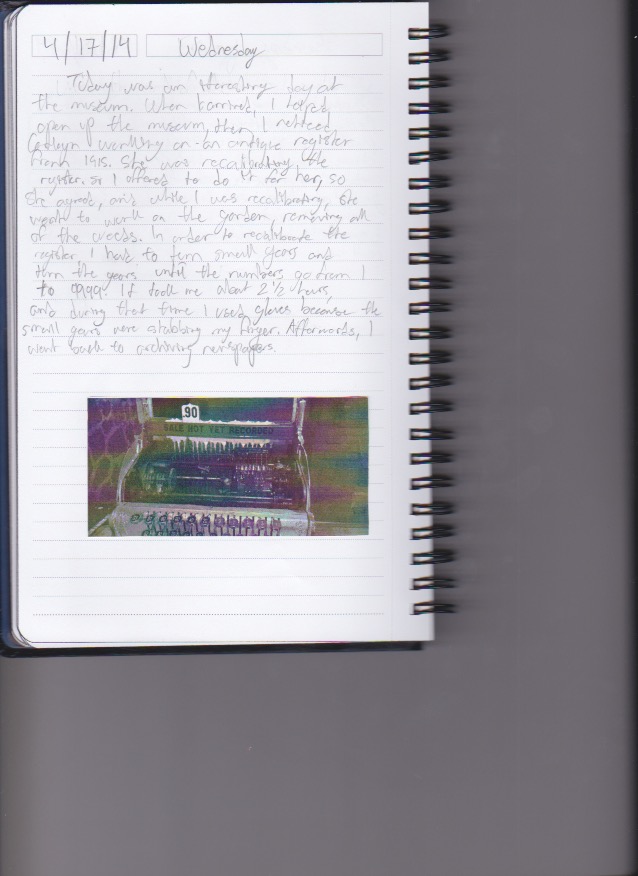 4/17/14 Wednesday
Today was an interesting day at
the museum. When I arrived, I helped
open up the museum, then I noticed
working on an antique register
from 1915. She was recalibrating the
register. so I offered to do it for her, so
she agreed, and while I was recalibrating, she
went to work on the garden, removing all
of the weeds. In order to recalibrate the
register, I had to turn small gears and
turn the gears until the numbers go from 1
to 9999. It took me about 2 1/2 hours,
and during that time I used gloves because the
small gears were stabbing my finger. Afterwards, I
went back to archiving newspapers.
.90
SALE NOT YET RECORDED